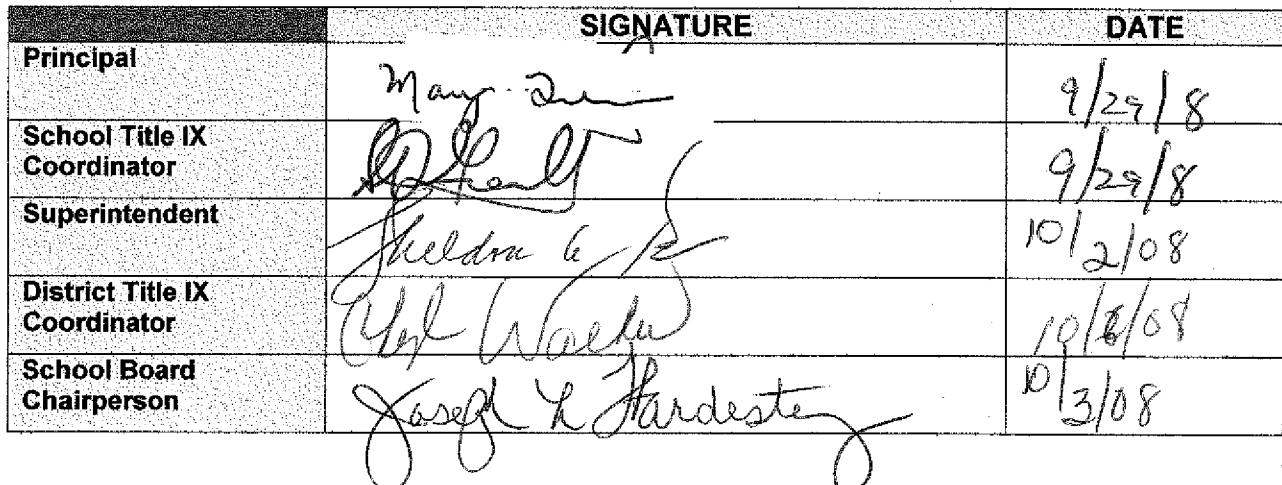 SIGNATURE DATE
Principal 9/29/8
School Title IX
Coordinator 9/29/8
Superintendent Sheldon 10/2/08
District Title IX
Coordinator Walker 10/6/08
School Board
Chairperson Joseph L Hardesty 10/3/08